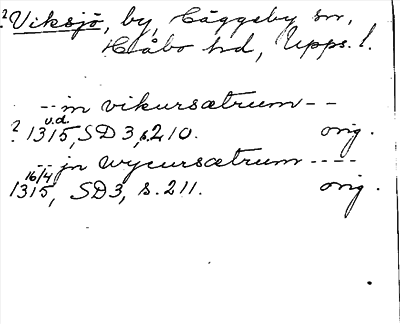 ? Viksjö, by, Häggeby sn,
Håbo hd, Upps. l.
-- in vikursætrum --
u.d.
? 1315, SD 3, s. 210. orig.
-- jn wycursætrum ----
16/4
1315, SD 3, s. 211. orig.